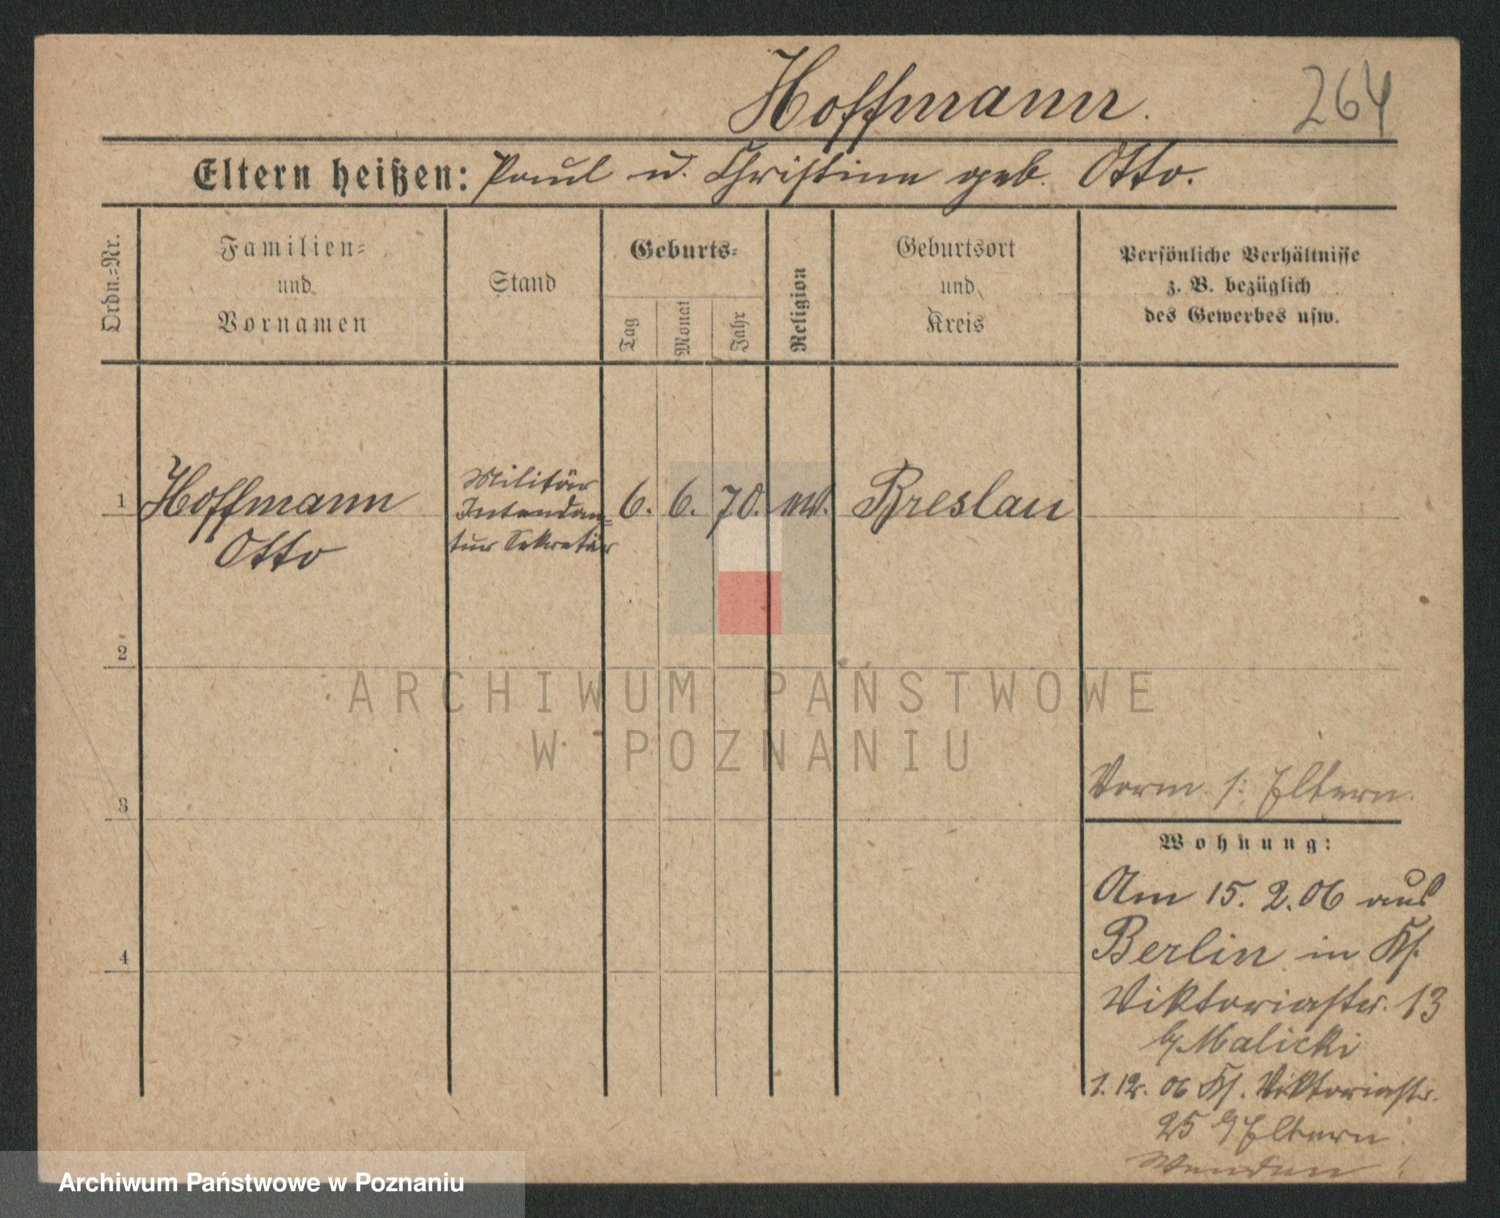 Hoffmann.
264
Eltern heißen: Paul u. Christine geb. Otto.
Ordn.-Nr.
Familien-
und
Vornamen
Stand
Geburts-
Tag
Monat
Jahr
Religion
Geburtsort
und
Kreis
Persönliche Verhältnisse
z. B. bezüglich
des Gewerbes usw.
1
Hoffmann
Otto
Militär
Intendan-
tur Sekretär
6. 6. 70.
Breslau
2
ARCHIWUM PAŃSTWOWE
W POZNANIU
3
4
Vorm. s. Eltern.
Wohnung:
Am 15. 2. 06 aus
Berlin in
Viktoriastr. 13
b/Malicki
1. 12. 06 Viktoriastr.
25 b/Eltern
Wenden!
Archiwum Państwowe w Poznaniu